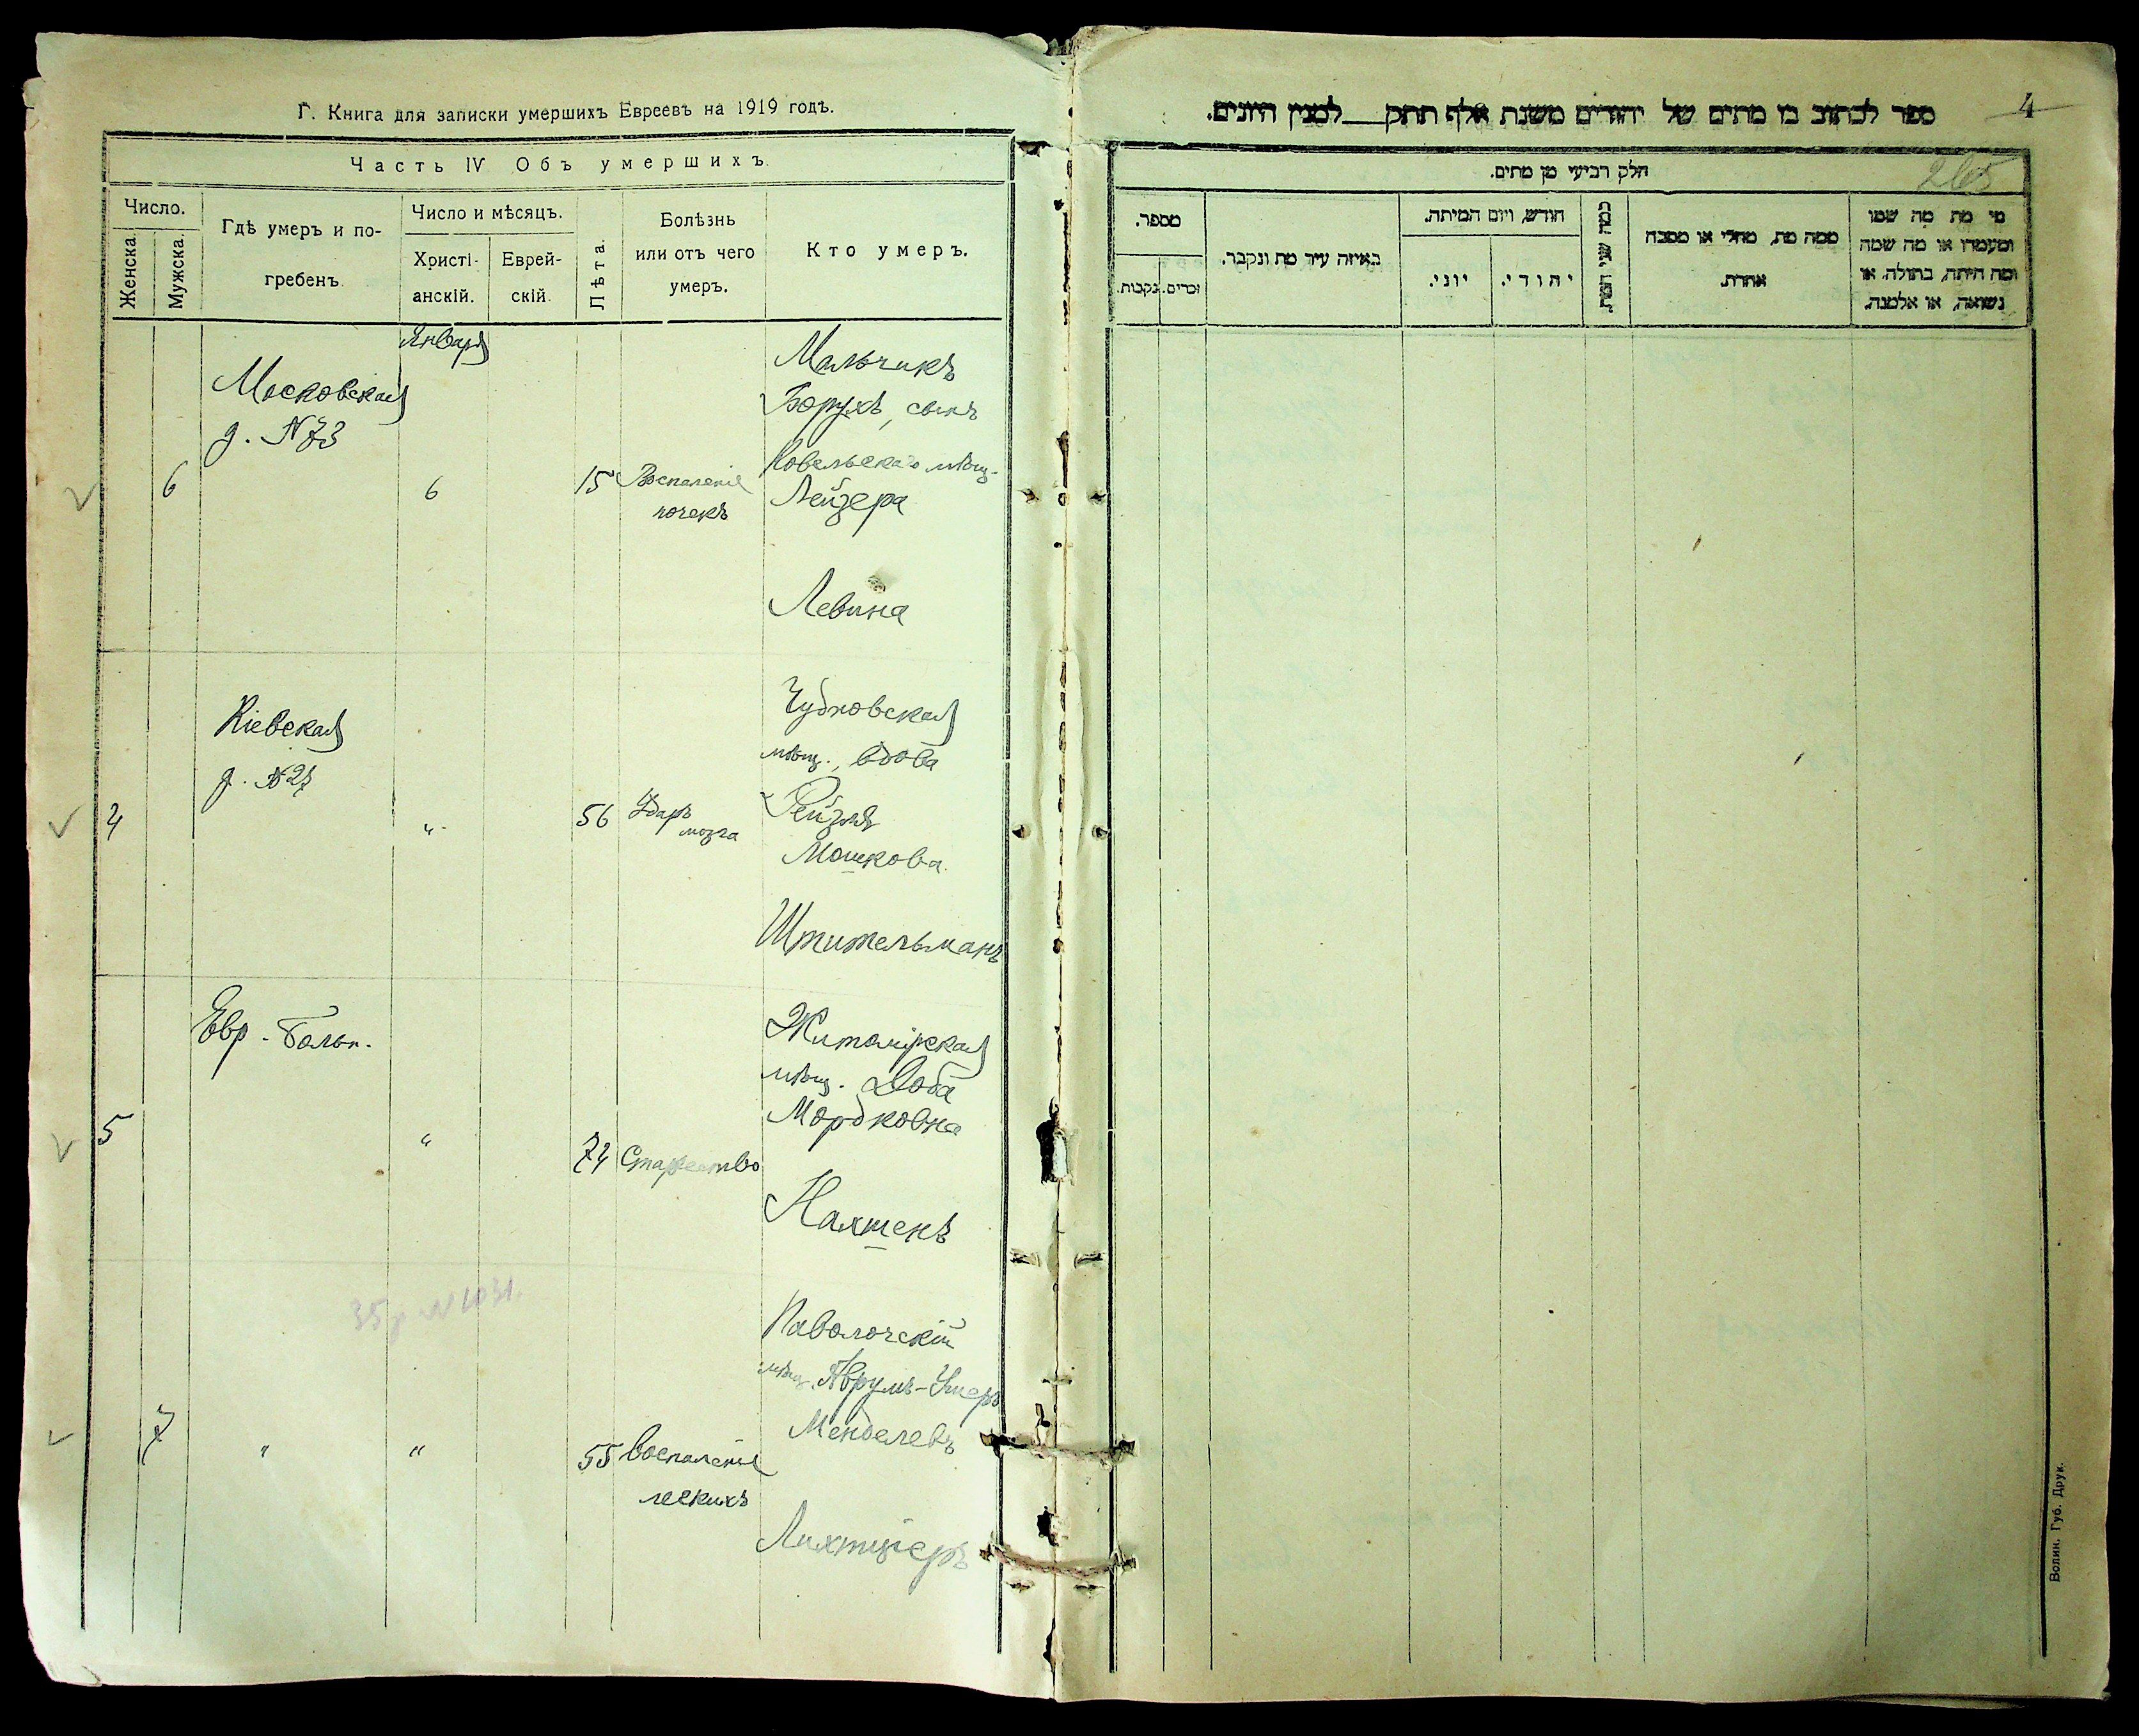 Г. Книга для записки умершихъ Евреевъ на 1919 годъ.
Часть IV Объ умершихъ.
Число.
Женска.
Мужска.
Гдѣ умеръ и по-
гребенъ.
Число и мѣсяцъ.
Христі-
анскій.
Еврей-
скій.
Лѣта.
Болѣзнь
или отъ чего
умеръ.
Кто умеръ.
Январь
Московская
д. №73
6
6
15
Воспаленіе
почекъ
Мальчикъ
Борухъ, сынъ
Ковельскаго мѣщ.
Лейзера
Левина
Кіевская
д. №27
4
"
56
Ударъ
мозга
Чудновская
мѣщ., вдова
Рейзля
Мошкова
Штительманъ
Евр. Больн.
5
"
74
Старчество
Житомірская
мѣщ. Доба
Мордковна
Нахтенъ
7
"
"
55
Воспаленіе
легкихъ
Паволочскій
мѣщ. Аврумъ-Умеръ
Менделевъ
Лихтціеръ
4
265
ספר לכתוב בו מתים של יהודים משנת אלף תתק___למנין היונים.
חלק רביעי מן מתים.
מספר.
נקבות.
זכרים.
באיזה עיר מת ונקבר.
חודש, ויום המיתה.
יוני.
יהודי.
כמה שני המת.
ממה מת, מחלי או מסבה
אחרת.
מי מת מה שמו
ומעמדו או מה שמה
ומה היתה, בתולה, או
נשואה, או אלמנה.
Волин. Губ. Друк.